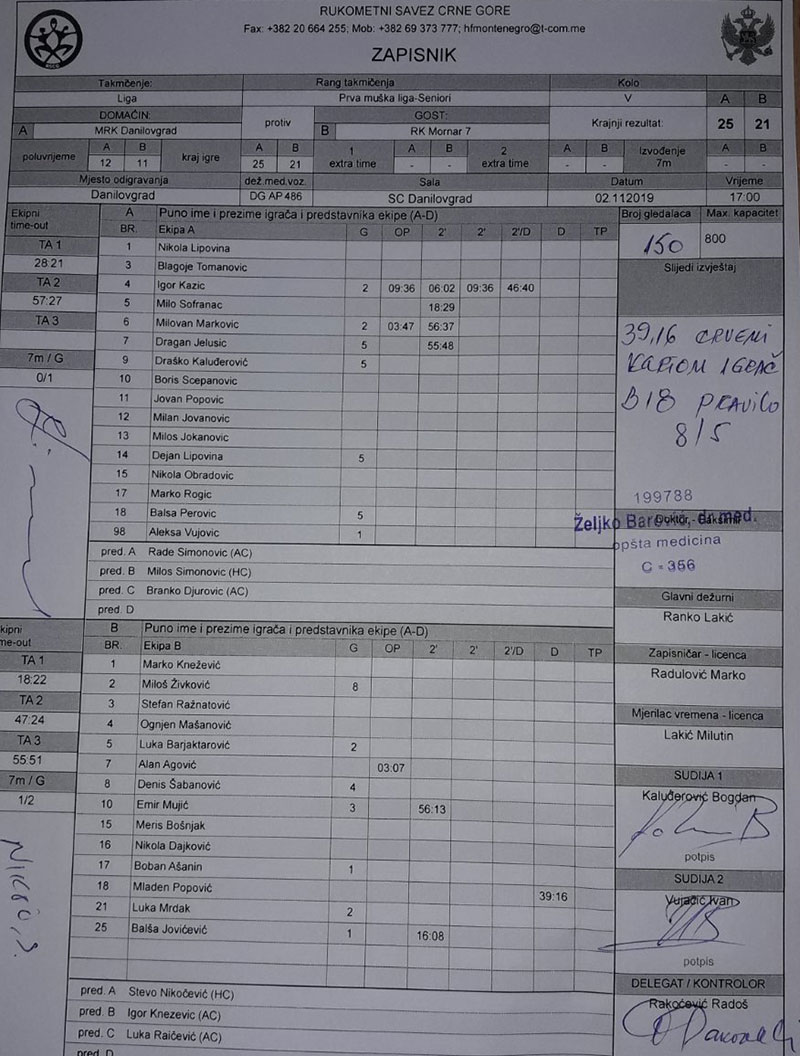 RUKOMETNI SAVEZ CRNE GORE
Fax: +382 20 664 255; Mob: +382 69 373 777; hfmontenegro@t-com.me
ZAPISNIK
Takmčenje: Rang takmičenja Kolo
Liga Prva muška liga-Seniori V A B
DOMAĆIN: protiv GOST: Krajnji rezultat: 25 21
A MRK Danilovgrad B RK Mornar 7
poluvnjeme A B kraj igre A B 1 extra time A B 2 extra time A B Izvođenje 7m A B
12 11 25 21 - - - - - -
Mjesto odigravanja dež.med.voz. Sala Datum Vrijeme
Danilovgrad DG AP 486 SC Danilovgrad 02.112019 17:00
Ekipni time-out A Puno ime i prezime igrača i predstavnika ekipe (A-D) Broj gledalaca Max. kapacitet
BR. Ekipa A G OP 2' 2' 2'/D D TP 150 800
TA 1 1 Nikola Lipovina
28:21 3 Blagoje Tomanovic Slijedi izvještaj
TA 2 4 Igor Kazic 2 09:36 06:02 09:36 46:40
57:27 5 Milo Sofranac 18:29
TA 3 6 Milovan Markovic 2 03:47 56:37
7 Dragan Jelusic 5 55:48
7m / G 9 Draško Kaluđerović 5
0/1 10 Boris Scepanovic
11 Jovan Popovic
12 Milan Jovanovic
13 Milos Jokanovic
14 Dejan Lipovina 5
15 Nikola Obradovic
17 Marko Rogic
18 Balsa Perovic 5
98 Aleksa Vujovic 1
39,16 CRVENI
KARTON IGRAČ
B18 PRAVILO
8/5
199788
Željko Barović, dr med.
opšta medicina
C - 356
pred. A Rade Simonovic (AC)
pred. B Milos Simonovic (HC)
pred. C Branko Djurovic (AC)
pred. D
Glavni dežurni
Ranko Lakić
Zapisničar - licenca
Radulović Marko
Mjerilac vremena - licenca
Lakić Milutin
ekipni me-out B Puno ime i prezime igrača i predstavnika ekipe (A-D)
BR. Ekipa B G OP 2' 2' 2'/D D TP
TA 1 1 Marko Knežević
18:22 2 Miloš Živković 8
TA 2 3 Stefan Ražnatović
47:24 4 Ognjen Mašanović
TA 3 5 Luka Barjaktarović 2
55:51 7 Alan Agović 03:07
7m / G 8 Denis Šabanović 4
1/2 10 Emir Mujić 3 56:13
15 Meris Bošnjak
16 Nikola Dajković
17 Boban Ašanin 1
18 Mladen Popović 39:16
21 Luka Mrdak 2
25 Balša Jovićević 1 16:08
SUDIJA 1
Kaluđerović Bogdan
potpis
SUDIJA 2
Vujačić Ivan
potpis
DELEGAT / KONTROLOR
Rakočević Radoš
pred. A Stevo Nikočević (HC)
pred. B Igor Knezevic (AC)
pred. C Luka Raičević (AC)
pred. D